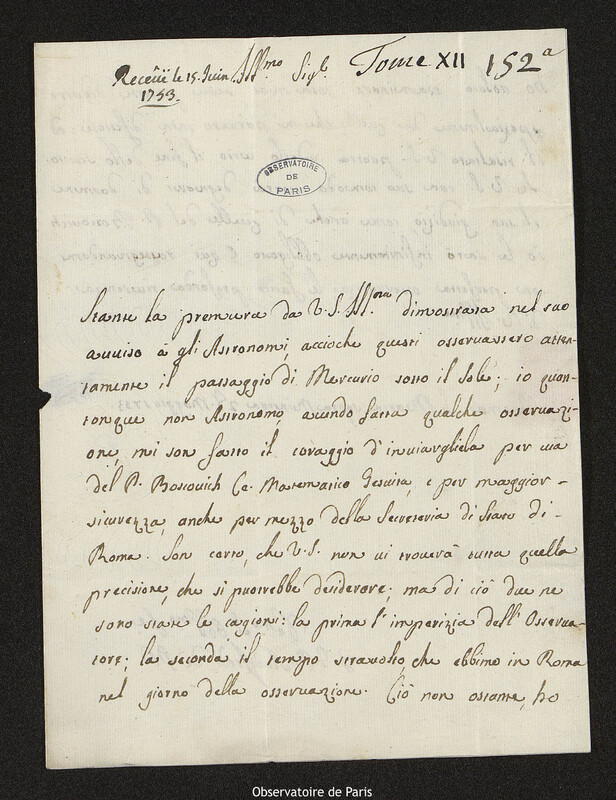 Receüe le 15. Juin
1753.
Ill.mo Sig.r
Tome XII
152a
OBSERVATOIRE
DE
PARIS
Stante la premura da V. S. Ill.ma dimostrata nel suo
avviso à gli Astronomi, accioche questi osservassero atten-
tamente il passaggio di Mercurio sotto il Sole; io quan-
tonque non Astronomo, avendo fatta qualche osservazi-
one, mi son fatto il coraggio d'inviargliela per via
del P. Boscovich Ce. Matematico Gesuita, e per maggior-
sicurezza, anche per mezzo della Secreteria di Stato di-
Roma. Son certo, che V. S. non vi trouerà tutta quella
precisione, che si puotrebbe desiderare; ma di ciò due ne
sono state le cagioni: la prima l'imperizia dell'Osserva-
tore; la seconda il tempo stravolto, che ebbimo in Roma
nel giorno della osservazione. Ciò non ostante, ho
Observatoire de Paris